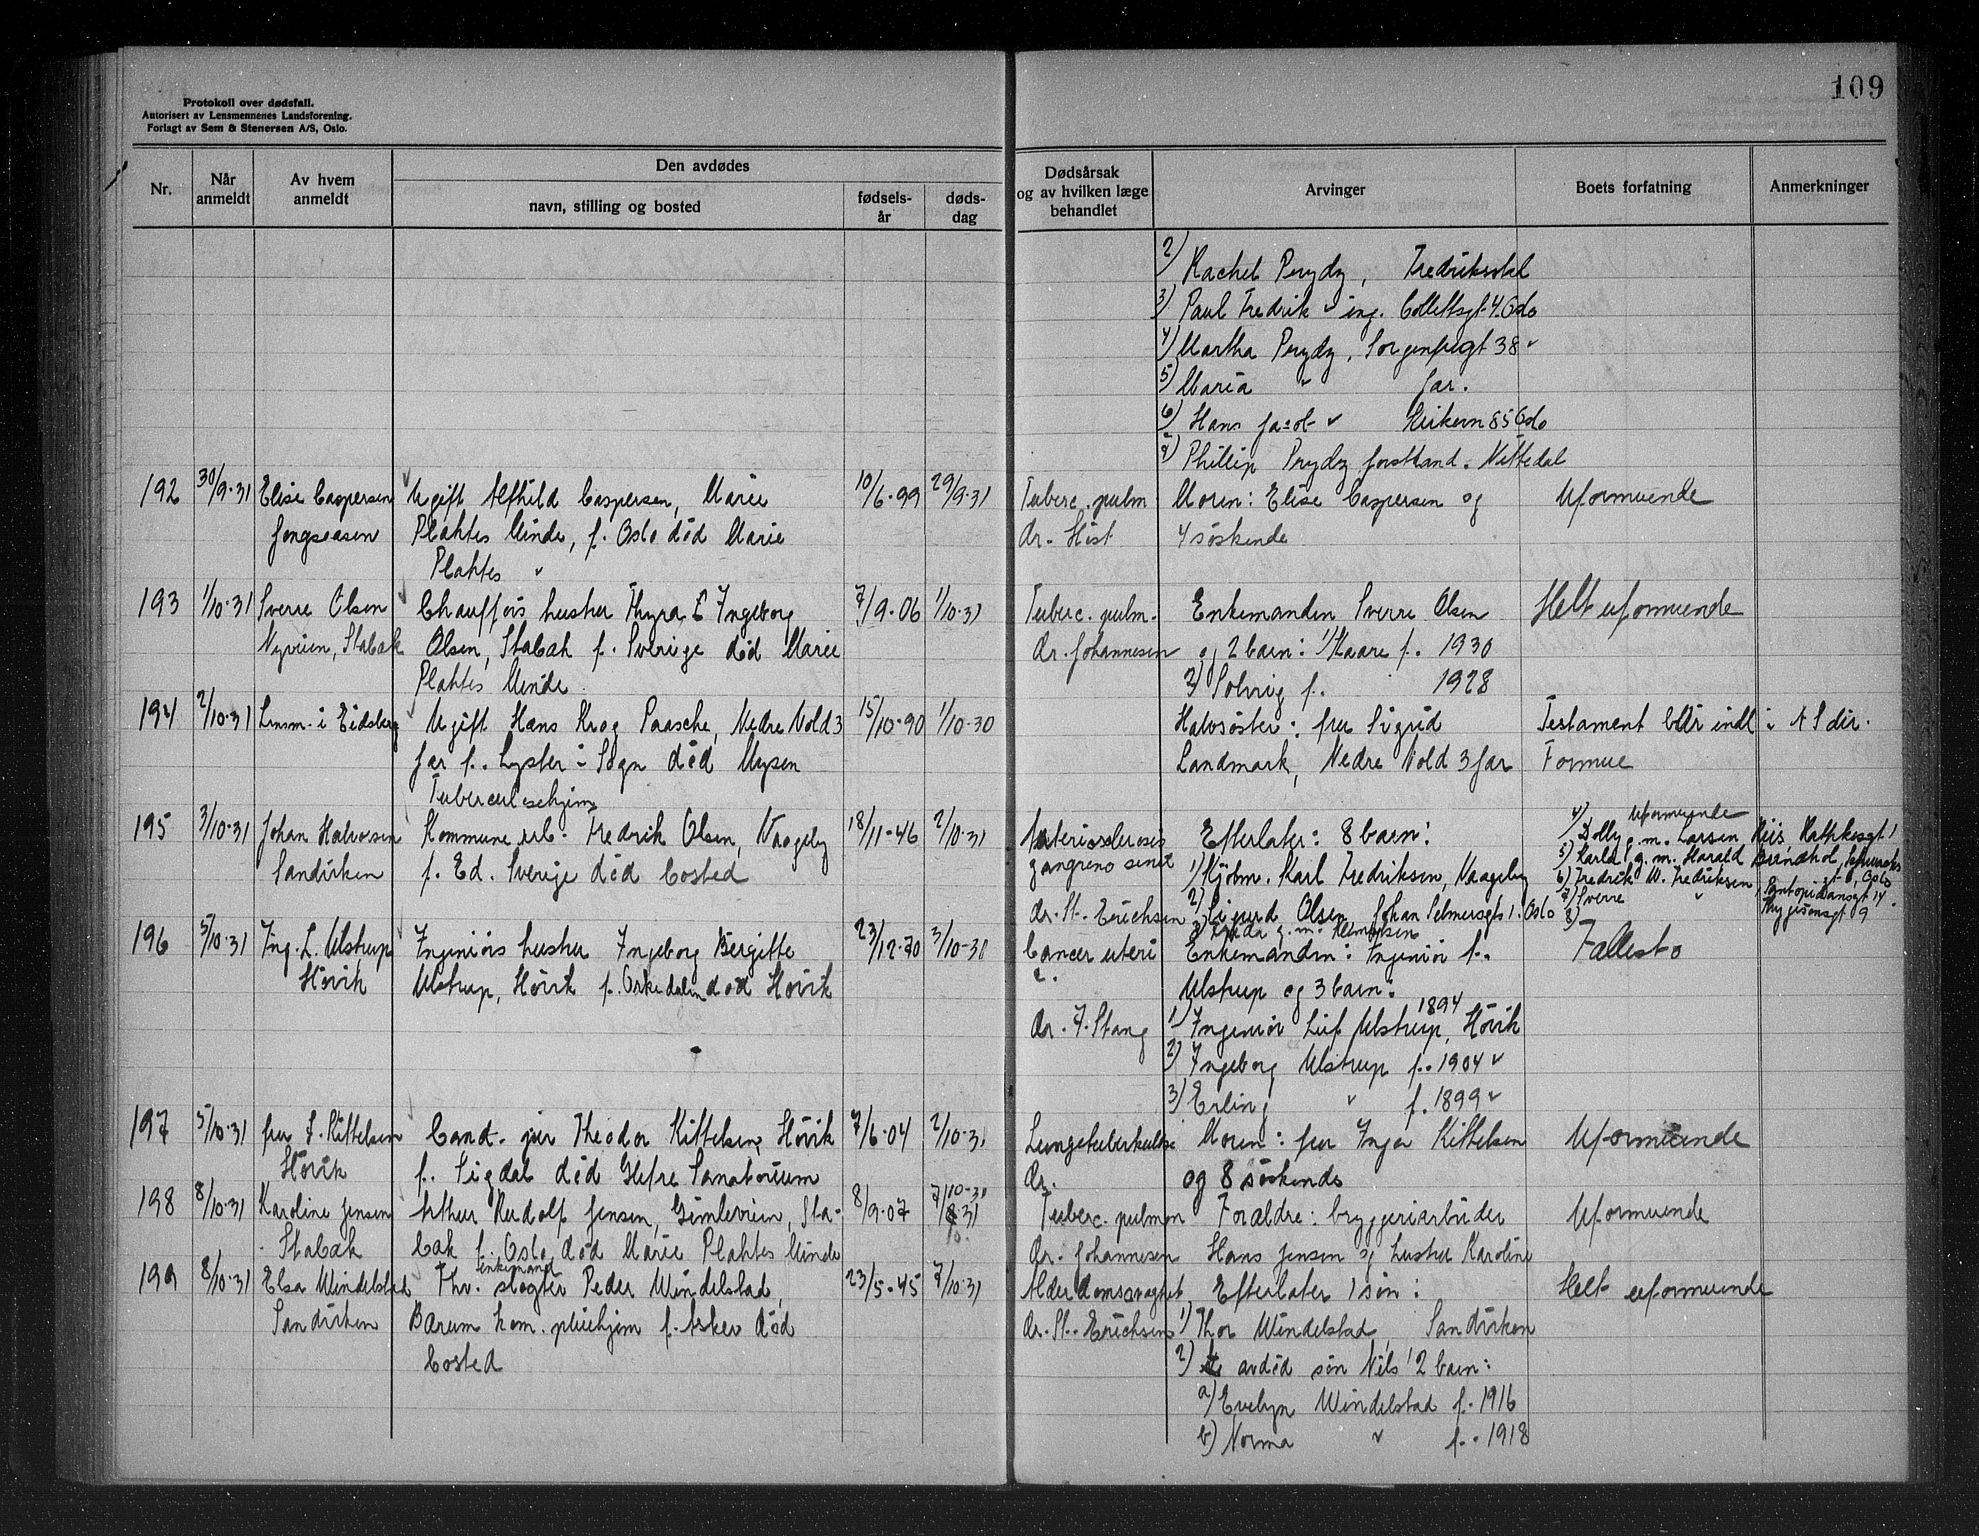 Protokoll over dødsfall.
Autorisert av Lensmennenes Landsforening.
Forlagt av Sem & Stenersen A/S, Oslo.
109
Nr.
Når anmeldt
Av hvem anmeldt
Den avdødes
navn, stilling og bosted
fødsels-år
døds-dag
Dødsårsak og av hvilken læge behandlet
Arvinger
Boets forfatning
Anmerkninger
2) Rachel Prydz, Fredrikstad
3) Paul Fredrik " ing. Collettsgt. 4. Oslo
4) Martha Prydz, Sorgenfrigt 38 "
5) Maria " Jar.
6) Hans Jacob " Kirkevn 85 Oslo
7) Phillip Prydz forstkand. Nittedal
192 30/9-31 Elise Caspersen Ugift Alfhild Caspersen, Marie 10/6-99 29/9-31 Tuberc. pulm Moren: Elise Caspersen og Uformuende
Jongsåsen Plahtes Minde, f. Oslo død Marie dr. Høst 4 søskende
Plahtes "
193 1/10-31 Sverre Olsen Chaufførs hustru Thyra E Ingeborg 7/9-06 1/10-31 Tuberc. pulm. Enkemanden Sverre Olsen Helt uformuende
Nyveien, Stabæk Olsen, Stabæk f. Sverige død Marie dr. Johannesen og 2 barn: 1) Kaare f. 1930
Plahtes Minde. 2) Solveig f. 1928
194 2/10-31 Lensm. i Eidsberg Ugift Hans Krog Paasche, Nedre Vold 3 15/10-90 1/10-30 Halvsøster: fru Sigrid Testament blir indl i A S dir.
Jar f. Lyster i Sogn død Mysen Landmark, Nedre Vold 3 Jar Formue
Tuberculosehjem
195 3/10-31 Johan Halvorsen Kommunearb. Fredrik Olsen, Vaageby 18/11-46 2/10-31 Arteriosclerosis Efterlater: 8 barn: Uformuende
4) Dolly g. m. Larsen Riis, Rathkesgt 1
Sandviken f. Ed. Sverige død bosted gangreno senil 1) Kjøbm. Karl Fredriksen, Vaageby 5) Karla g. m. Harald
6) Fredrik W. Fredriksen, gt 8, Oslo
dr. St. Erichsen 2) Sigurd Olsen Johan Selmersgts 1. Oslo 7) Sverre " Pontoppidansgt 14.
3) g. m. 8) Thygesonsgt 9
196 5/10-31 Ing. L. Ulstrup Ingeniørs hustru Ingeborg Bergitte 23/12-70 3/10-31 Cancer uteri Enkemanden: Ingeniør L. Fallesbo
Høvik Ulstrup, Høvik f. Orkedalen død Høvik Ulstrup og 3 barn:
dr. F. Stang 1) Ingeniør Leif Ulstrup, 1894 Høvik
2) Ingeborg Ulstrup f. 1904 "
3) Erling " f. 1899 "
197 5/10-31 fru I. Kittelsen Cand. jur Theodor Kittelsen, Høvik 7/6-04 2/10-31 Lungetuberkulose Moren: fru Inga Kittelsen Uformuende
Høvik f. Sigdal død Glitre Sanatorium dr. og 8 søskende
198 8/10-31 Karoline Jensen Arthur Rudolf Jensen, Gimleveien, Sta- 8/9-07 7/10-31 Tuberc. pulmon Forældre: bryggeriarbeider Uformuende
Stabæk bæk f. Oslo død Marie Plahtes Minde dr. Johannesen Hans Jensen og hustru Karoline
199 8/10-31 Elsa Windelstad Fhv. slagter enkemand Peder Windelstad, 23/5-45 7/10-31 Alderdomssvaghet Efterlater 1 søn: Helt uformuende
Sandviken Bærum kom. pleiehjem f. Asker død dr. St. Erichsen 1) Thor Windelstad, Sandviken
bosted 2) avdød søn Nils' 2 barn:
a) Evelyn Windelstad f. 1916
b) Norma " f. 1918